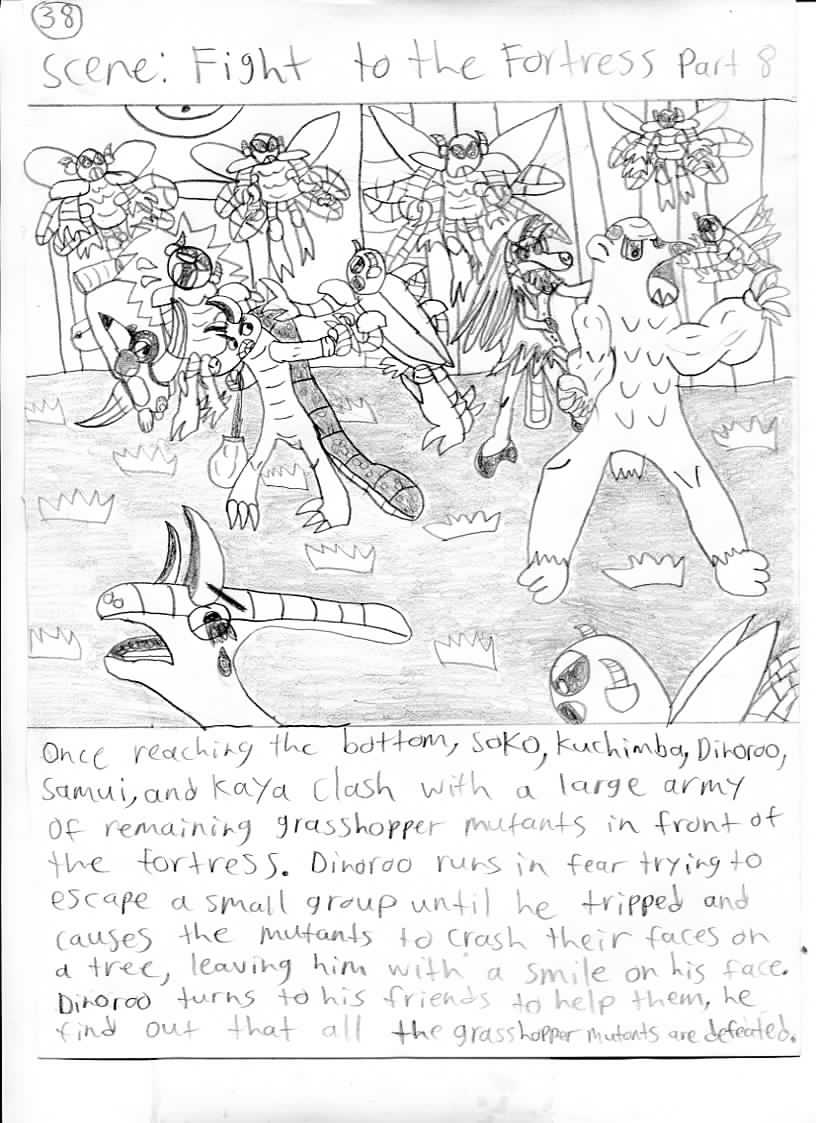 38
Scene: Fight to the Fortress Part 8
Once reaching the bottom, Soko, Kuchimba, Dinoroo,
Samui, and Kaya clash with a large army
of remaining grasshopper mutants in front of
the fortress. Dinoroo runs in fear trying to
escape a small group until he tripped and
causes the mutants to crash their faces on
a tree, leaving him with a smile on his face.
Dinoroo turns to his friends to help them, he
find out that all the grasshopper mutants are defeated.